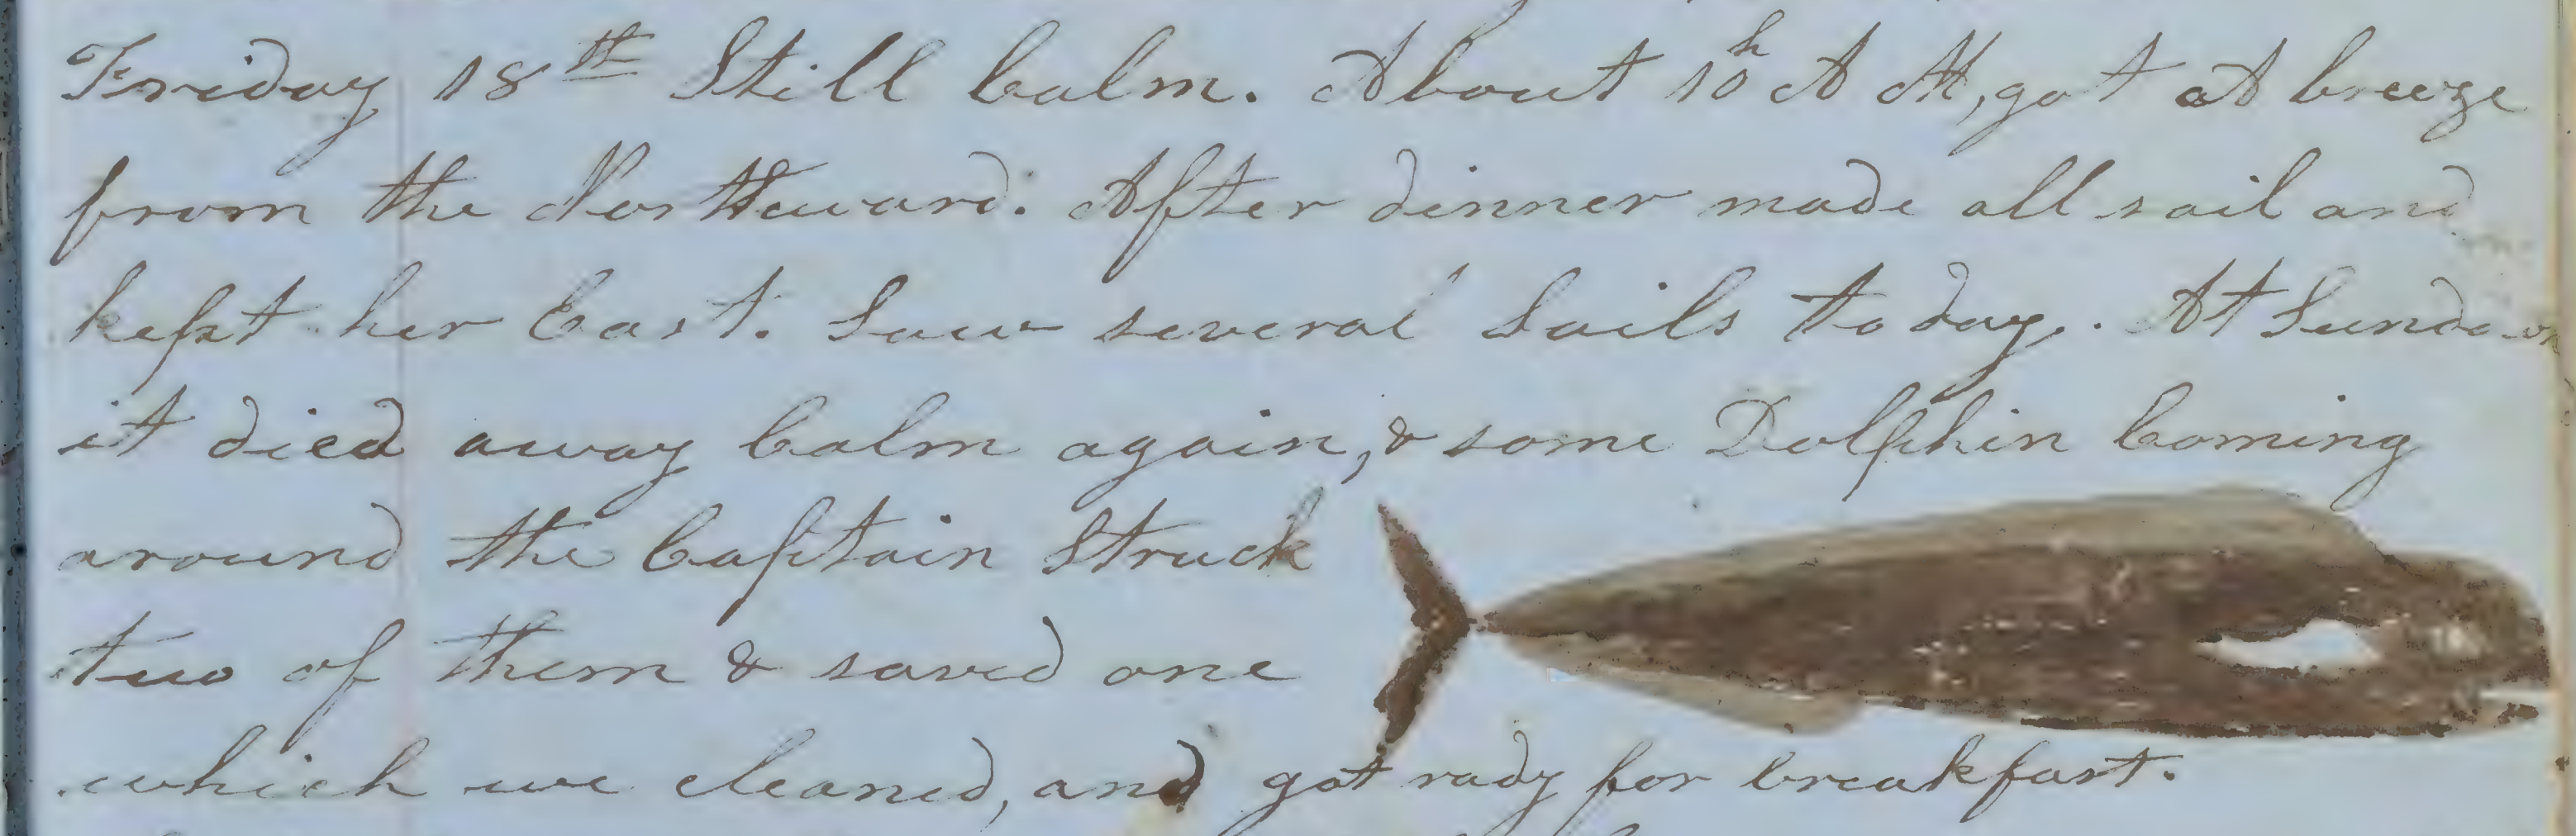 Friday 18th Still Calm. About 10h A M, got a breeze
from the Northward. After dinner made all sail and
kept her East. Saw several Sails to day. At Sundown
it died away Calm again, & some Dolphin Coming
around the Captain Struck
two of them & saved one
which we cleaned, and got rady for breakfast.